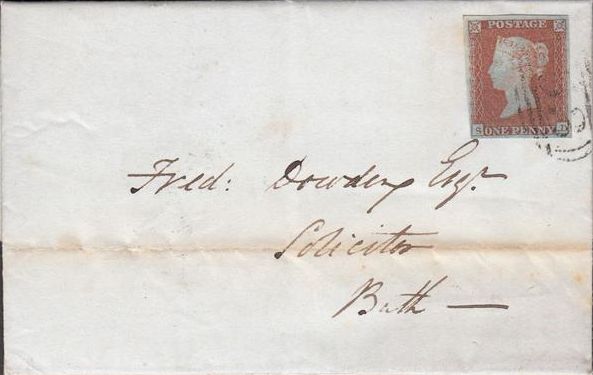 POSTAGE
ONE PENNY
Fred: Dowding Esqr.
Solicitor
Bath —